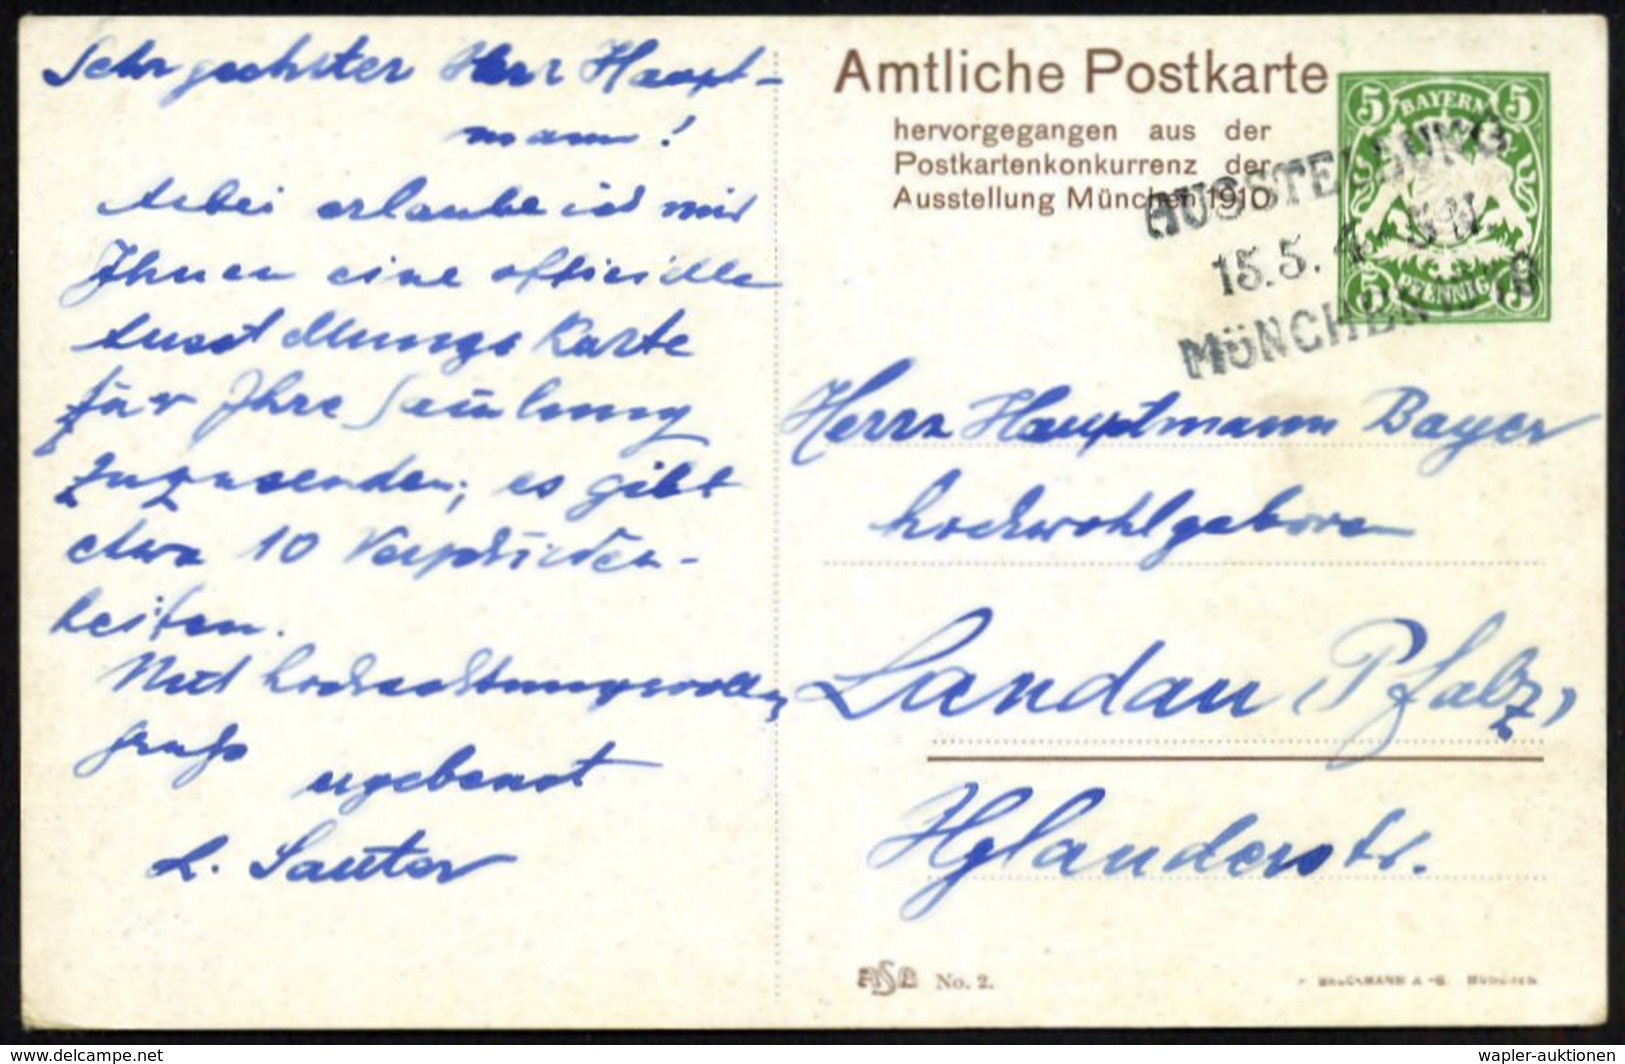 Sehr geehrter Herr Haupt-
mann!
Anbei erlaube ich mir
Ihnen eine officielle
Ausstellungs Karte
für Ihre Samlung
zuzusenden; es gibt
etwa 10 Verschieden-
heiten.
Mit hochachtungsvollem
Gruß
ergebenst
L. Sauter
Amtliche Postkarte
hervorgegangen aus der
Postkartenkonkurrenz der
Ausstellung München 1910
5 BAYERN 5
5 PFENNIG 5
AUSSTELLUNG
15.5. 4-5N
MÜNCHEN
Herrn Hauptmann Bayer
hochwohlgeboren
Landau, Pfalz,
Hglanderstr.
No. 2.
BRUCKMANN A.-G. MÜNCHEN
www.delcampe.net
wapler-auktionen